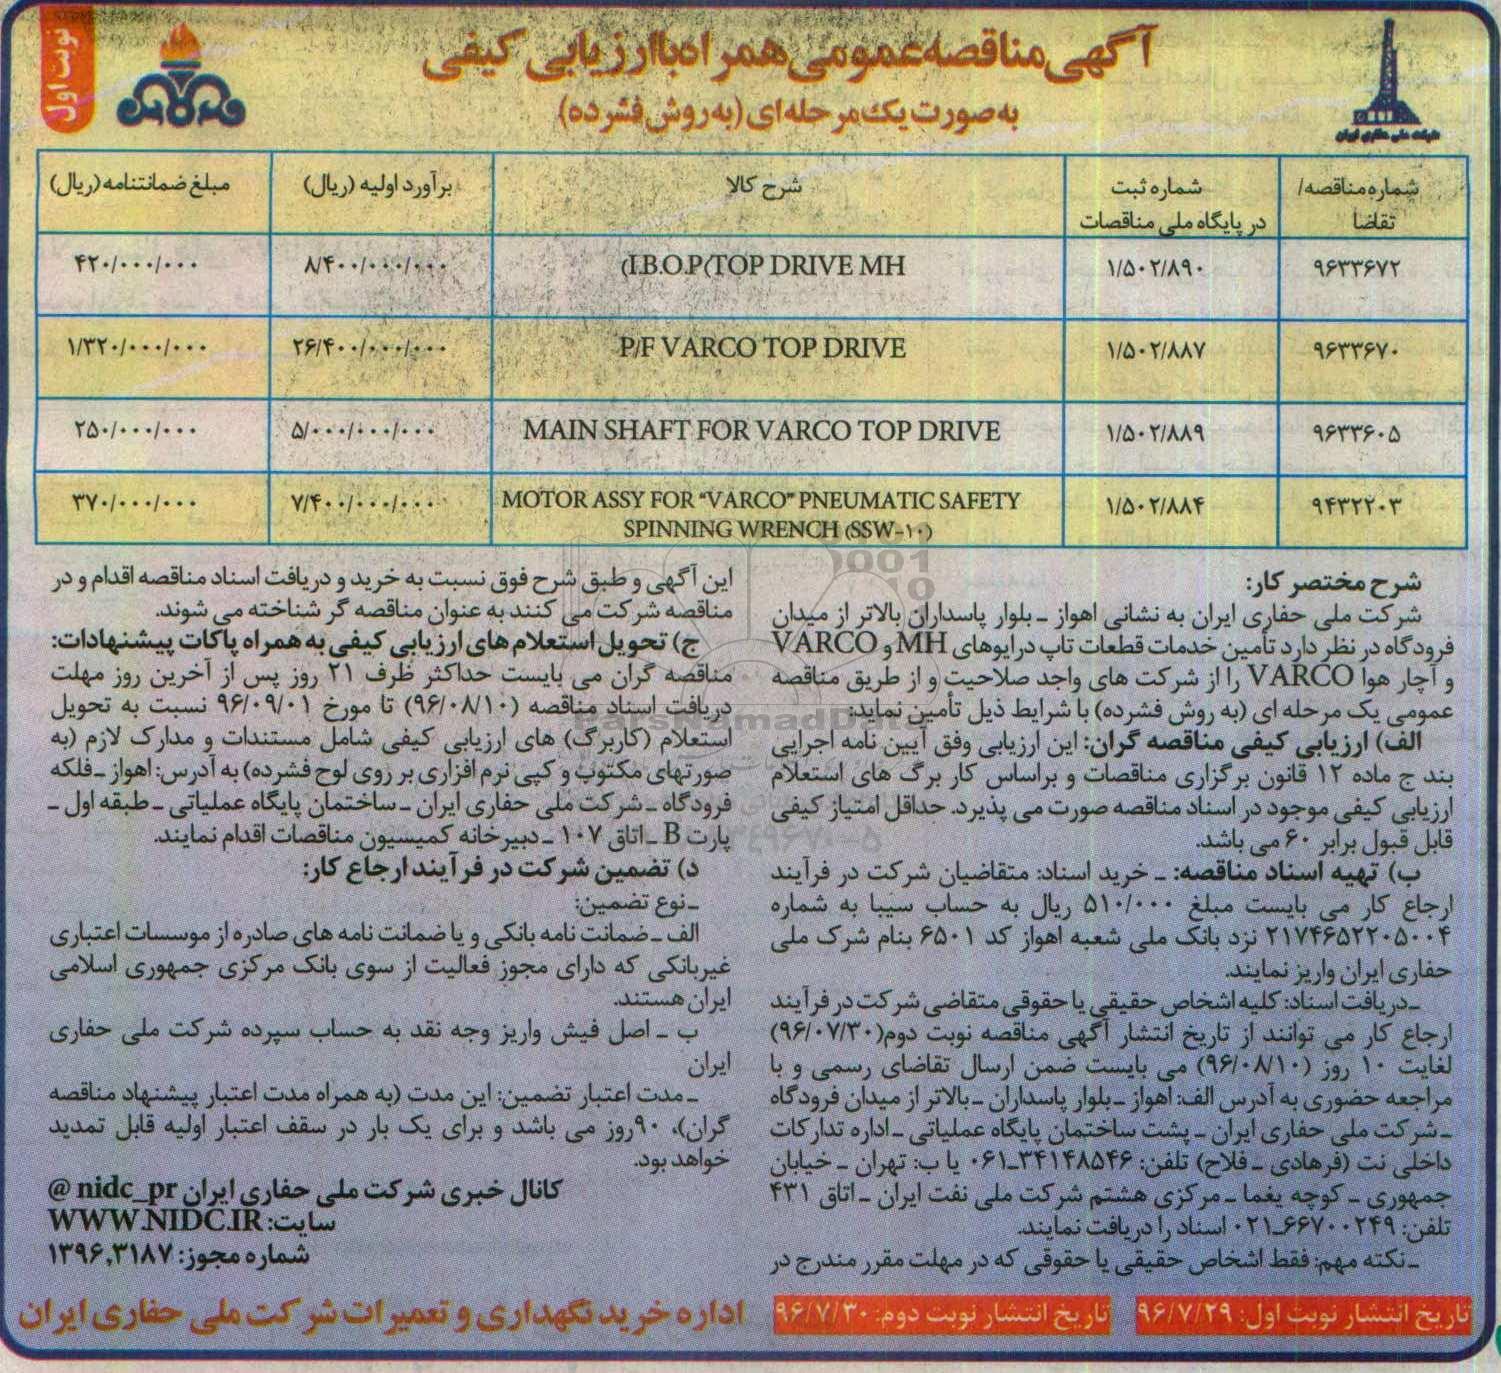 آگهی مناقصه عمومی همراه با ارزیابی کیفی
به صورت یک مرحله ای (به روش فشرده)
نوبت اول
شرکت ملی حفاری ایران
شماره مناقصه/ تقاضا | شماره ثبت در پایگاه ملی مناقصات | شرح کالا | برآورد اولیه (ریال) | مبلغ ضمانتنامه (ریال)
۹۶۳۳۶۷۲ | ۱/۵۰۲/۸۹۰ | (I.B.O.P(TOP DRIVE MH | ۸/۴۰۰/۰۰۰/۰۰۰ | ۴۲۰/۰۰۰/۰۰۰
۹۶۳۳۶۷۰ | ۱/۵۰۲/۸۸۷ | P/F VARCO TOP DRIVE | ۲۶/۴۰۰/۰۰۰/۰۰۰ | ۱/۳۲۰/۰۰۰/۰۰۰
۹۶۳۳۶۰۵ | ۱/۵۰۲/۸۸۹ | MAIN SHAFT FOR VARCO TOP DRIVE | ۵/۰۰۰/۰۰۰/۰۰۰ | ۲۵۰/۰۰۰/۰۰۰
۹۴۳۲۲۰۳ | ۱/۵۰۲/۸۸۴ | MOTOR ASSY FOR "VARCO" PNEUMATIC SAFETY SPINNING WRENCH (SSW-۱۰) | ۷/۴۰۰/۰۰۰/۰۰۰ | ۳۷۰/۰۰۰/۰۰۰
شرح مختصر کار:
شرکت ملی حفاری ایران به نشانی اهواز ـ بلوار پاسداران بالاتر از میدان
فرودگاه در نظر دارد تأمین خدمات قطعات تاپ درایوهای MH و VARCO
و آچار هوا VARCO را از شرکت های واجد صلاحیت و از طریق مناقصه
عمومی یک مرحله ای (به روش فشرده) با شرایط ذیل تأمین نماید:
الف) ارزیابی کیفی مناقصه گران: این ارزیابی وفق آیین نامه اجرایی
بند ج ماده ۱۲ قانون برگزاری مناقصات و براساس کار برگ های استعلام
ارزیابی کیفی موجود در اسناد مناقصه صورت می پذیرد. حداقل امتیاز کیفی
قابل قبول برابر ۶۰ می باشد.
ب) تهیه اسناد مناقصه: ـ خرید اسناد: متقاضیان شرکت در فرآیند
ارجاع کار می بایست مبلغ ۵۱۰/۰۰۰ ریال به حساب سیبا به شماره
۲۱۷۴۶۵۲۲۰۵۰۰۴ نزد بانک ملی شعبه اهواز کد ۶۵۰۱ بنام شرک ملی
حفاری ایران واریز نمایند.
ـ دریافت اسناد: کلیه اشخاص حقیقی یا حقوقی متقاضی شرکت در فرآیند
ارجاع کار می توانند از تاریخ انتشار آگهی مناقصه نوبت دوم(۹۶/۰۷/۳۰)
لغایت ۱۰ روز (۹۶/۰۸/۱۰) می بایست ضمن ارسال تقاضای رسمی و با
مراجعه حضوری به آدرس الف: اهواز ـ بلوار پاسداران ـ بالاتر از میدان فرودگاه
ـ شرکت ملی حفاری ایران ـ پشت ساختمان پایگاه عملیاتی ـ اداره تدارکات
داخلی نت (فرهادی ـ فلاح) تلفن: ۳۴۱۴۸۵۴۶ـ۰۶۱ یا ب: تهران ـ خیابان
جمهوری ـ کوچه یغما ـ مرکزی هشتم شرکت ملی نفت ایران ـ اتاق ۴۳۱
تلفن: ۶۶۷۰۰۲۴۹ـ۰۲۱ اسناد را دریافت نمایند.
ـ نکته مهم: فقط اشخاص حقیقی یا حقوقی که در مهلت مقرر مندرج در
این آگهی و طبق شرح فوق نسبت به خرید و دریافت اسناد مناقصه اقدام و در
مناقصه شرکت می کنند به عنوان مناقصه گر شناخته می شوند.
ج) تحویل استعلام های ارزیابی کیفی به همراه پاکات پیشنهادات:
مناقصه گران می بایست حداکثر ظرف ۲۱ روز پس از آخرین روز مهلت
دریافت اسناد مناقصه (۹۶/۰۸/۱۰) تا مورخ ۹۶/۰۹/۰۱ نسبت به تحویل
استعلام (کاربرگ) های ارزیابی کیفی شامل مستندات و مدارک لازم (به
صورتهای مکتوب و کپی نرم افزاری بر روی لوح فشرده) به آدرس: اهواز ـ فلکه
فرودگاه ـ شرکت ملی حفاری ایران ـ ساختمان پایگاه عملیاتی ـ طبقه اول ـ
پارت B ـ اتاق ۱۰۷ ـ دبیرخانه کمیسیون مناقصات اقدام نمایند.
د) تضمین شرکت در فرآیند ارجاع کار:
ـ نوع تضمین:
الف ـ ضمانت نامه بانکی و یا ضمانت نامه های صادره از موسسات اعتباری
غیربانکی که دارای مجوز فعالیت از سوی بانک مرکزی جمهوری اسلامی
ایران هستند.
ب ـ اصل فیش واریز وجه نقد به حساب سپرده شرکت ملی حفاری
ایران
ـ مدت اعتبار تضمین: این مدت (به همراه مدت اعتبار پیشنهاد مناقصه
گران)، ۹۰روز می باشد و برای یک بار در سقف اعتبار اولیه قابل تمدید
خواهد بود.
کانال خبری شرکت ملی حفاری ایران @ nidc_pr
سایت: WWW.NIDC.IR
شماره مجوز: ۱۳۹۶,۳۱۸۷
تاریخ انتشار نوبت اول: ۹۶/۷/۲۹
تاریخ انتشار نوبت دوم: ۹۶/۷/۳۰
اداره خرید نگهداری و تعمیرات شرکت ملی حفاری ایران
ParsNamadData